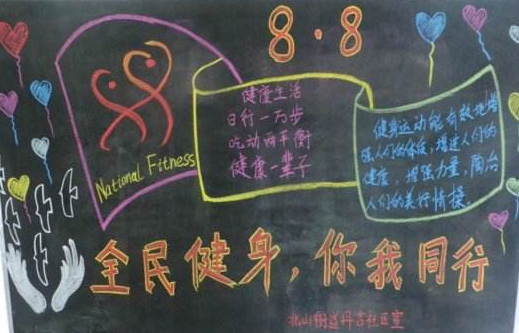 8·8
National Fitness
健康生活
日行一万步
吃动两平衡
健康一辈子
健身运动能有效地增
强人们的体质，增进人们的
健康，增强力量，陶冶
人们的美行情操。
全民健身，你我同行
北山街道丹吉社区宣